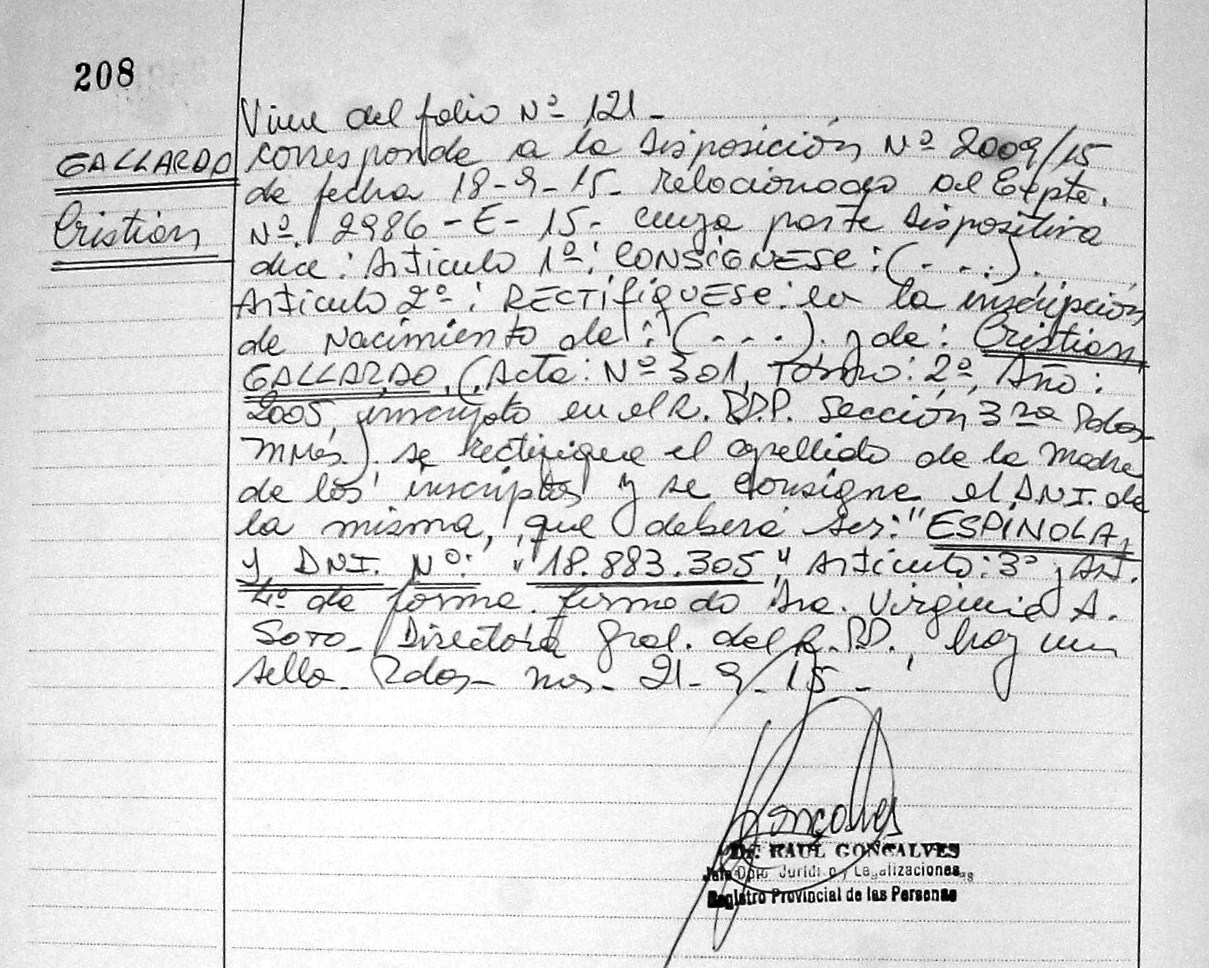 208
Viene del folio Nº 121-
GALLARDO
Cristian
Corresponde a la Disposición Nº 2009/15
de fecha 18-9-15- relacionado al Expte.
Nº 2986-E-15- cuya parte dispositiva
dice: Artículo 1º: CONSÍGNESE: (...).
Artículo 2º: RECTIFÍQUESE: en la inscripción
de Nacimiento de: (...). y de: Cristian
GALLARDO, (Acta: Nº 301, Tomo: 2º, Año:
2005, inscripto en el R.P.D.P. Sección 3ra Pdas
mnes). se rectifique el apellido de la madre
de los inscriptos y se consigne el DNI. de
la misma, que deberá ser: "ESPÍNOLA,
y DNI. Nº: "18.883.305" Artículo: 3º y Art.
4º de forma. firmado Dra. Virginia A.
Soto- Directora Gral. del R.P.D., hay un
sello. Pdas- mns- 21-9-15-
Goncalves
Dr. RAUL GONCALVES
Jefe Dpto. Jurídico y Legalizaciones
Registro Provincial de las Personas